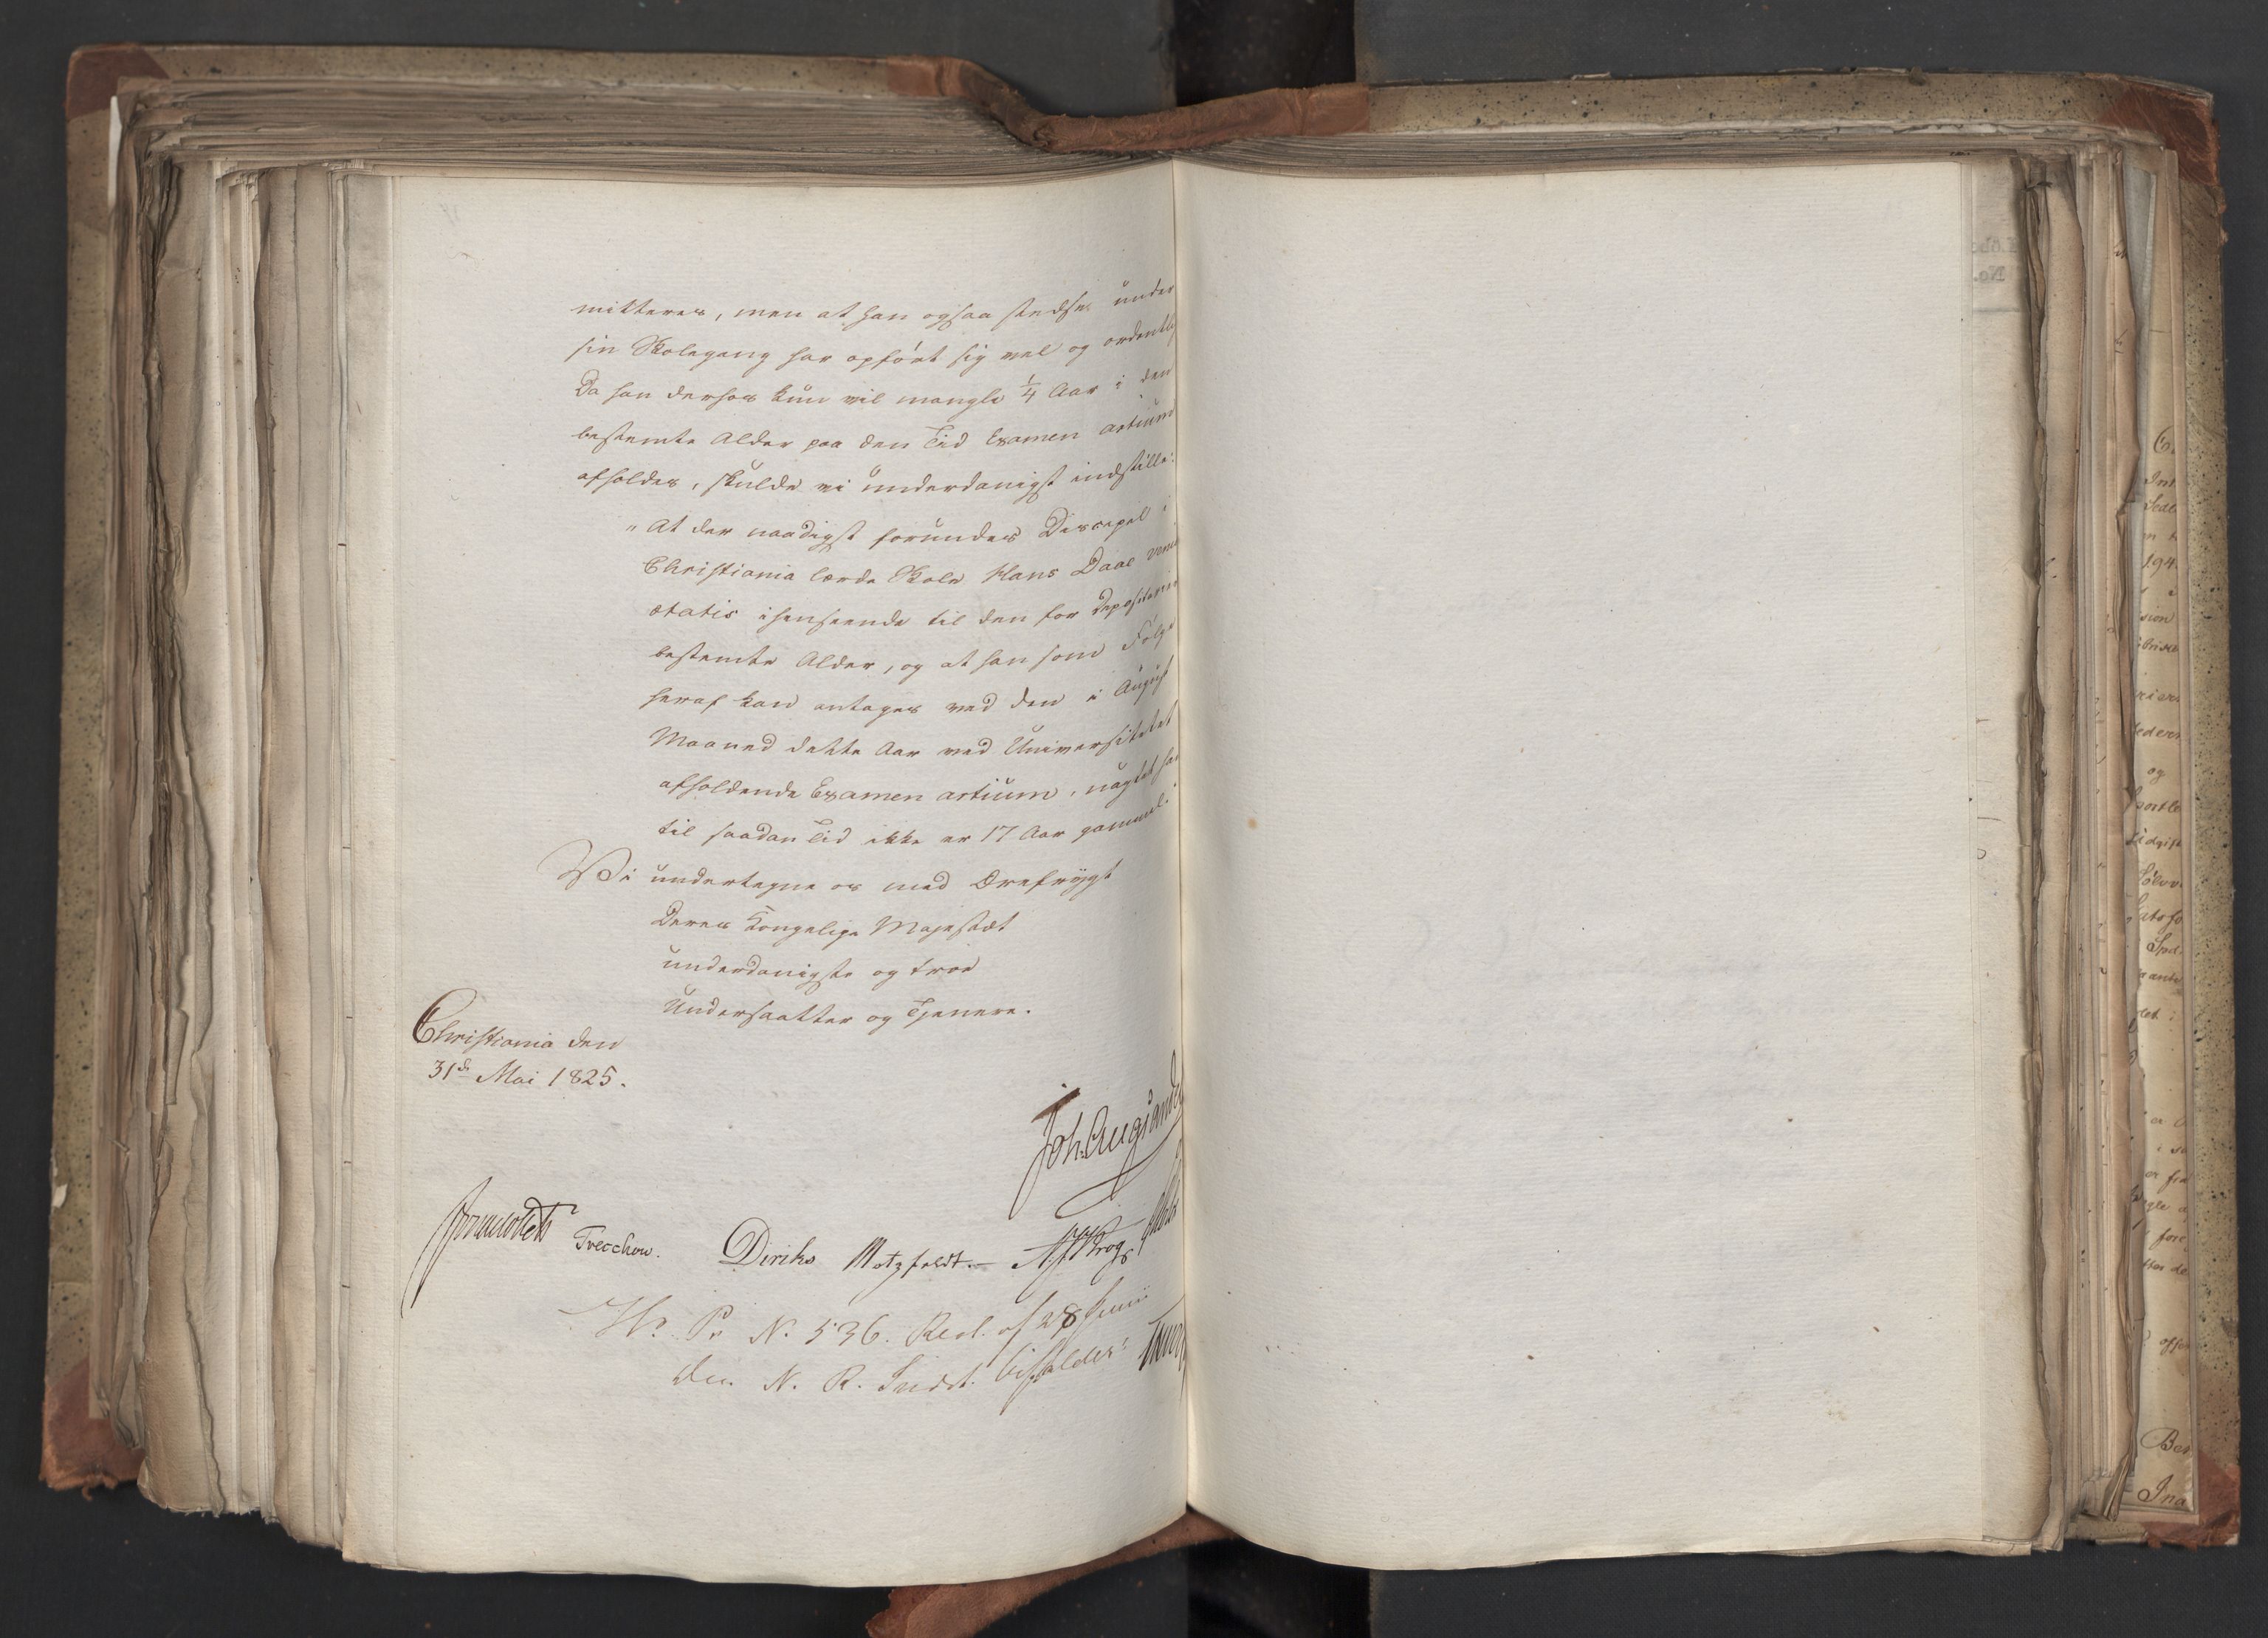 mitteres, men at han ogsaa stedse under
sin Skolegang har opført sig vel og ordentlig
Da han derhos kun vil mangle ¼ Aar i den
bestemte Alder paa den Tid Examen artium
afholdes, skulde vi underdanigst indstille:
"At der naadigst forundes Discipel i
Christiania lærde Skole Hans Daae venia
ætatis ihenseende til den for Depositurer
bestemte Alder, og at han som Følge
heraf kan antages ved den i August
Maaned dette Aar ved Universitetet
afholdende Examen artium, uagtet han
til saadan Tid ikke er 17 Aar gammel."
Vi undertegne os med Ærefrygt
Deres Kongelige Majestæt
underdanigste og troe
Undersaatter og Tjenere.
Christiania den
31d Mai 1825.
Joh. Aug. Sandels
Sommerhielm Treschow. Diriks Motzfeldt. Krog
No 536. Resl. af 28 Junii
den N. R. Indst. bifaldes.